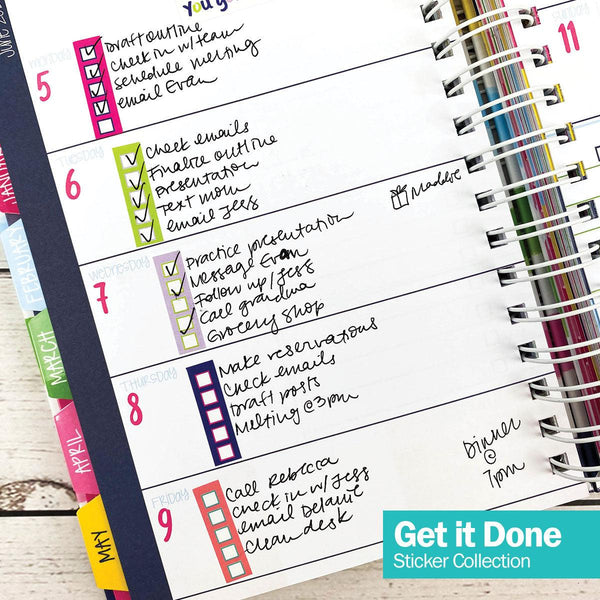 you
JUNE
MONDAY
5
Draft outline
Check in w/team
schedule meeting
email Evan
11
TUESDAY
6
Check emails
Finalize outline
Presentation
Text mom
email Jess
WEDNESDAY
7
Practice presentation
Message Evan
Follow up/Jess
Call grandma
Grocery shop
THURSDAY
8
Make reservations
Check emails
Draft posts
Meeting @ 3pm
FRIDAY
9
Call Rebecca
check in w/ Jess
email Delanie
Clean desk
Dinner
@
7pm
FEBRUARY
MARCH
APRIL
MAY
Get it Done
Sticker Collection